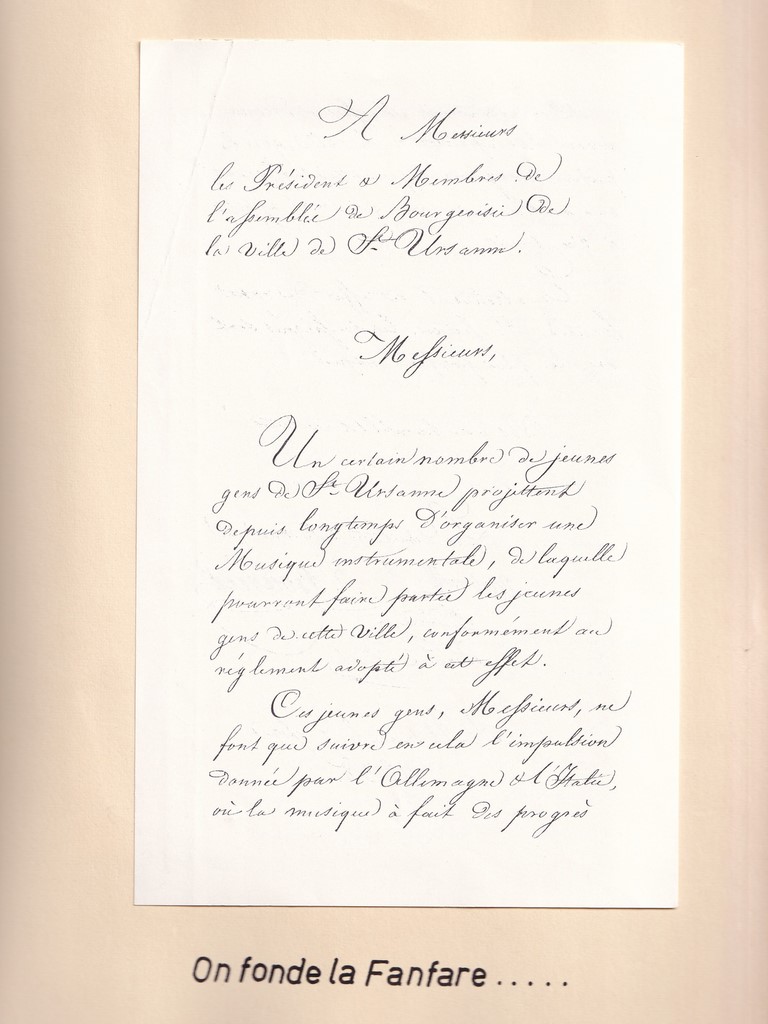 A Messieurs
les Président & Membres de
l'assemblée de Bourgeoisie de
la Ville de St Ursanne.
Messieurs,
Un certain nombre de jeunes
gens de St Ursanne projettent
depuis longtemps d'organiser une
Musique instrumentale, de laquelle
pourront faire partie les jeunes
gens de cette Ville, conformément au
réglement adopté à cet effet.
Ces jeunes gens, Messieurs, ne
font que suivre en cela l'impulsion
donnée par l'Allemagne & l'Italie,
où la musique à fait des progrès
On fonde la Fanfare .....